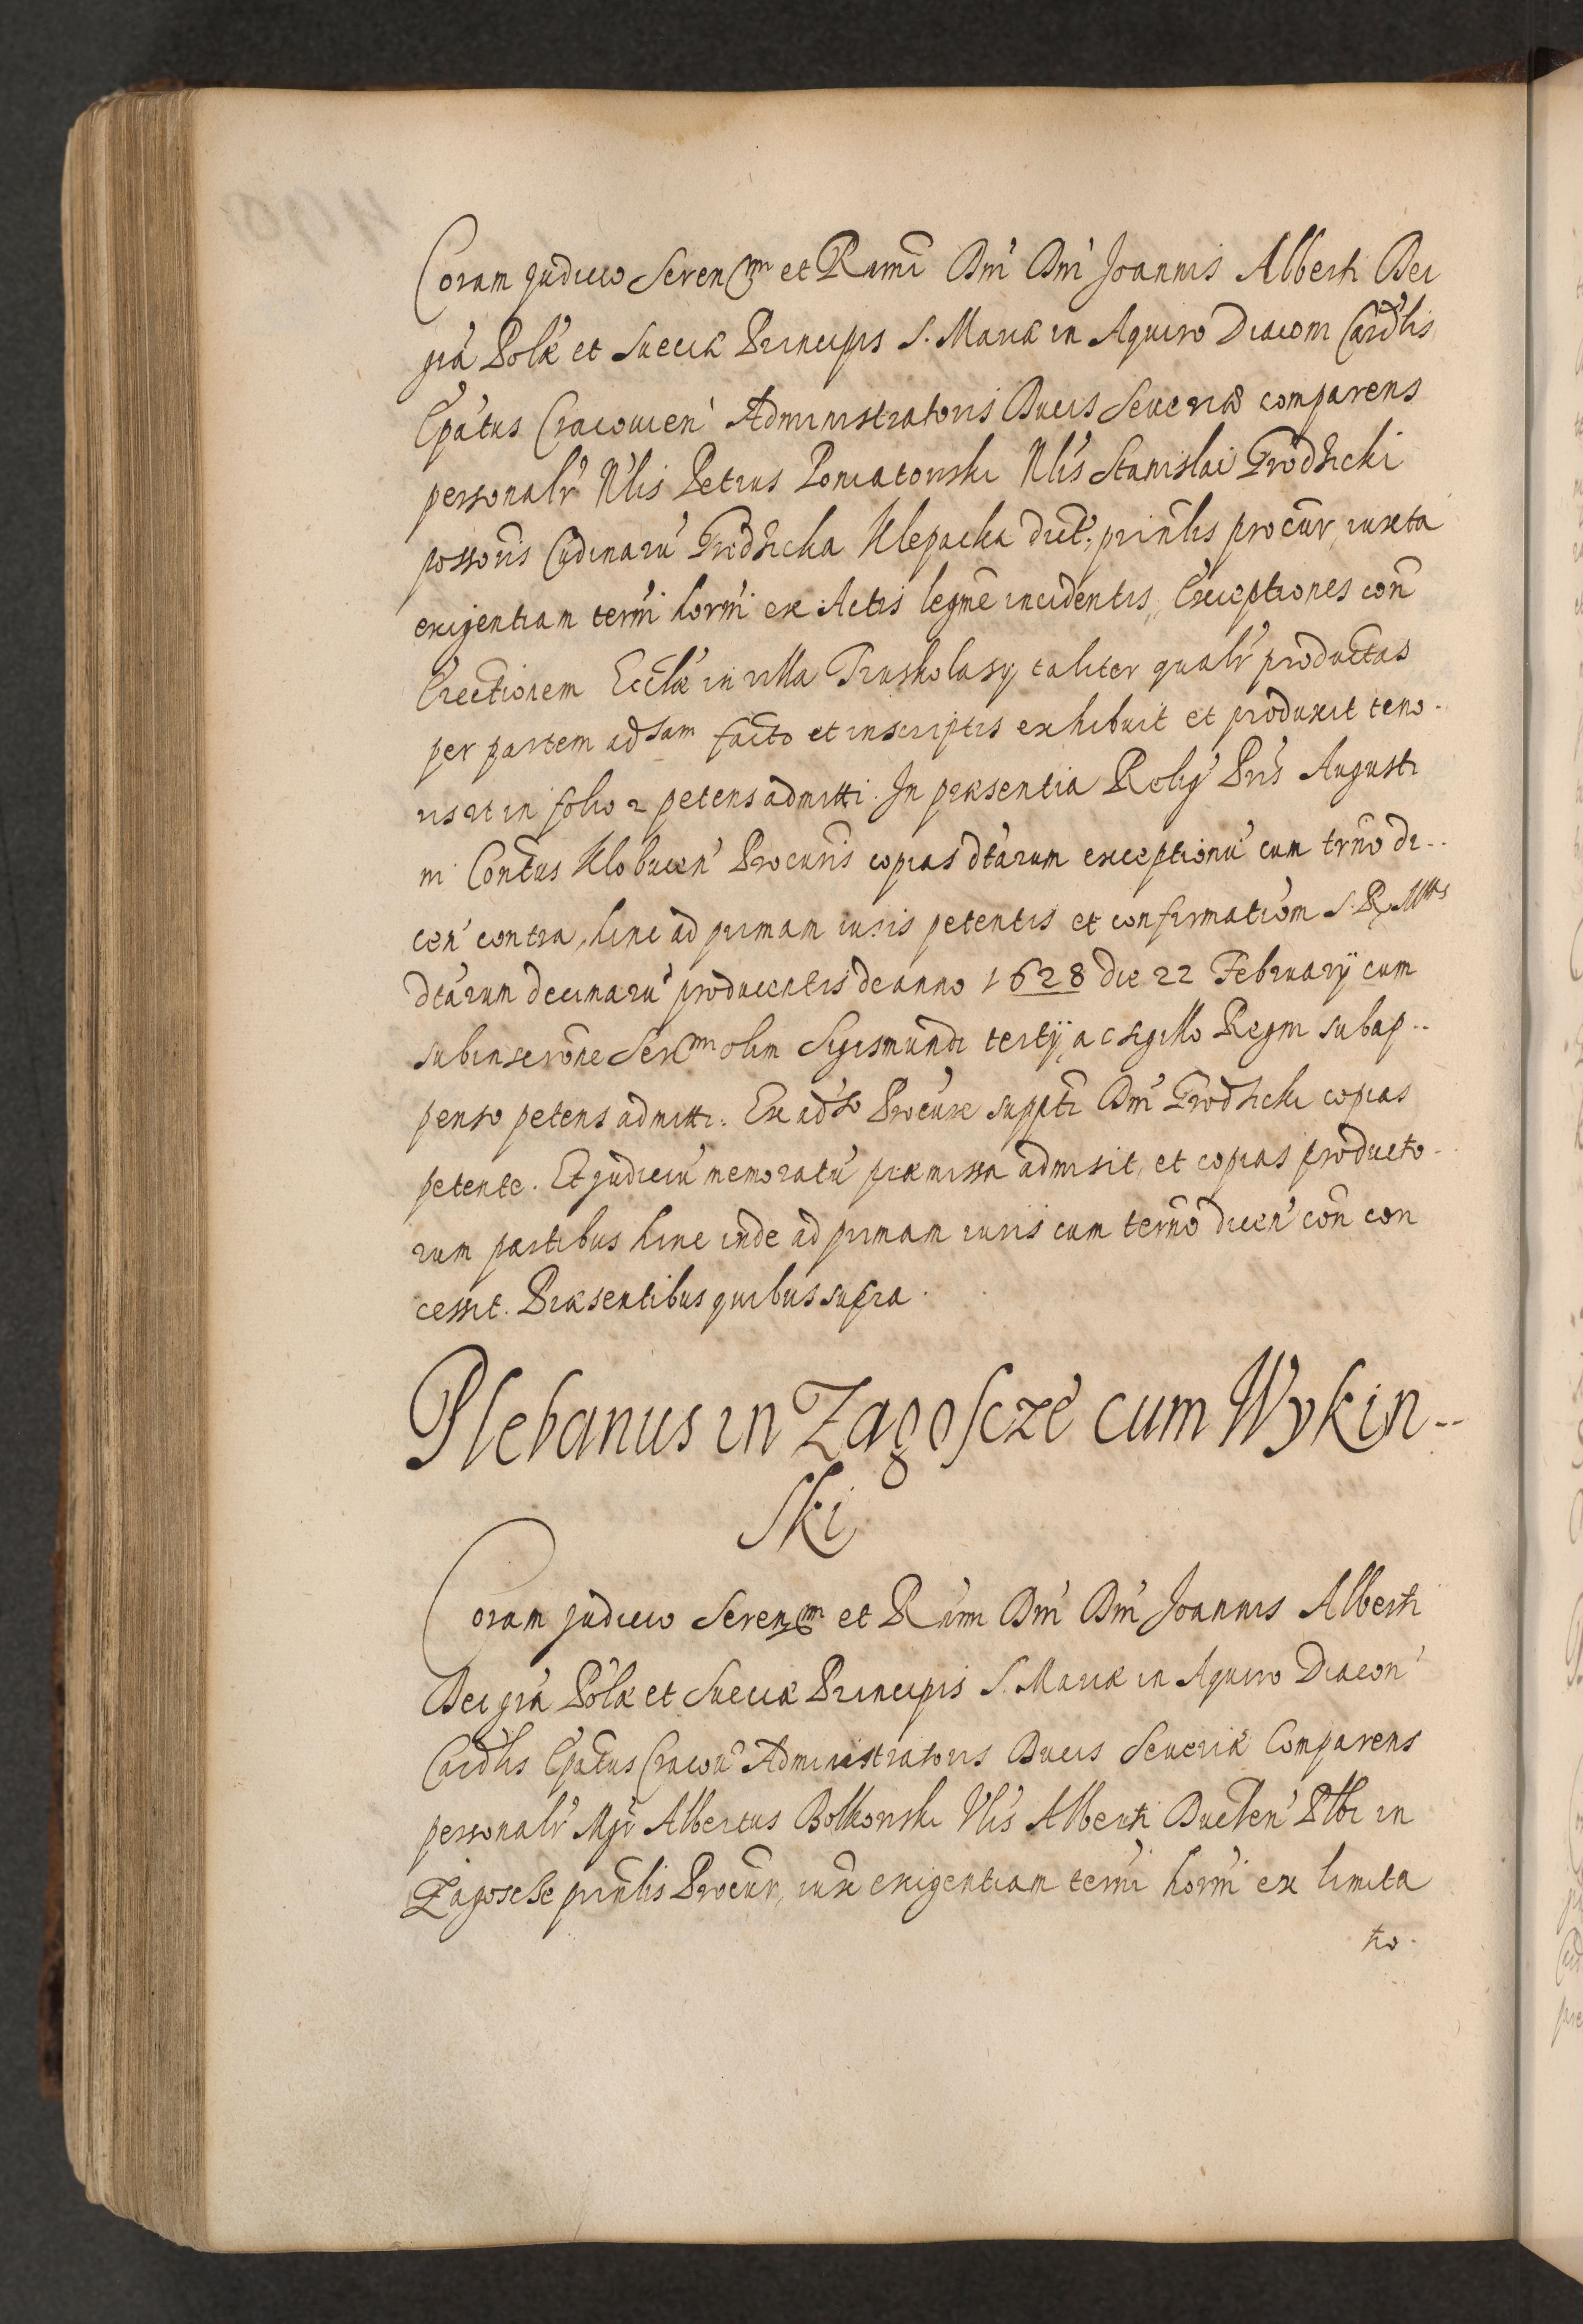 Coram judicio Serenmi et Rmi Dni Dni Joannis Alberti Dei
gra Polae et Sueciae Principis S. Mariae in Aquiro Diaconi Cardlis
Epatus Cracovien Administratoris Ducis Severiae comparens
personalr Nlis Petrus Poniatowski Nlis Stanislai Grodzicki
possoris Grodzicka Klepacka dict. prinlis procur, iuxta
exigentiam termi horni ex Actis legme incidentis, Exceptiones con
Erectionem Ecclae in villa Truskolasy taliter qualr productas
per partem adsam facto et inscriptis exhibuit et produxit teno-
ris ut in folio 2 petens admitti. In praesentia Relig Pris Augusti
ni Contus Klobucen Procuris copias dtarum exceptionu cum trno di--
cen contra, hinc ad primam iuris petentis et confirmatiom S. R. Mttis
dtarum decimaru producentis de anno 1628 die 22 Februarÿ cum
subinserone Sermi olim Sigismundi tertÿ ac sigillo Regni subap--
penso petens admitti. Ex adso Procure suppti Dni Grodzicki copias
petente. Et judiciu memoratu praemissa admisit, et copias producto-
rum partibus hinc inde ad primam iuris cum terno dicen con con
cessit. Praesentibus quibus supra.
Plebanus in Zagoscze cum Wykin--
ski
Coram judicio Serenmi et Rmi Dni Dni Joannis Alberti
Dei gra Polae et Sueciae Principis S. Mariae in Aquiro Diacon
Cardlis Epatus Cracov Administratoris Ducis Severiae Comparens
personalr Mgr Albertus Bolkowski Vlis Alberti Duchen Plbi in
Zagoscze prinlis Procur, iux exigentiam termi horni ex limita
tio.